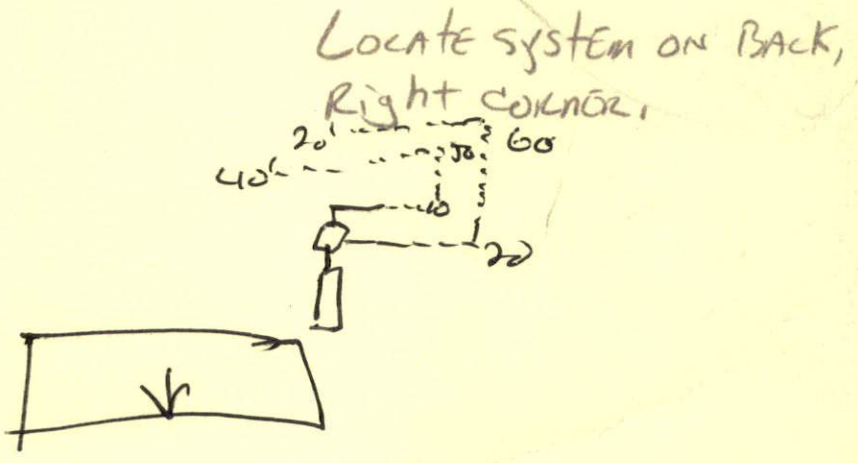 Locate system on Back,
Right corner.
20' 60
40' 50
10
20